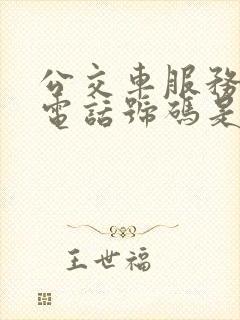 公交車服務
電話號碼是
王世福